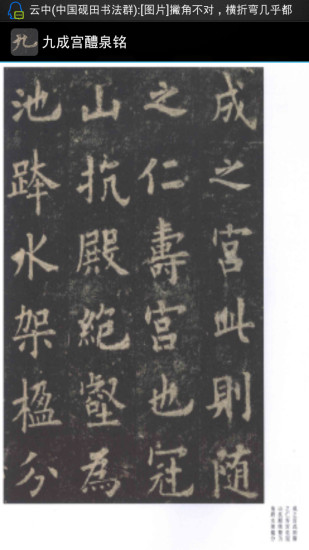 云中(中国砚田书法群):[图片]撇角不对，横折弯几乎都
九成宫醴泉铭
成之宫此則随
之仁壽宫也冠
山抗殿絶壑為
池跨水架楹分